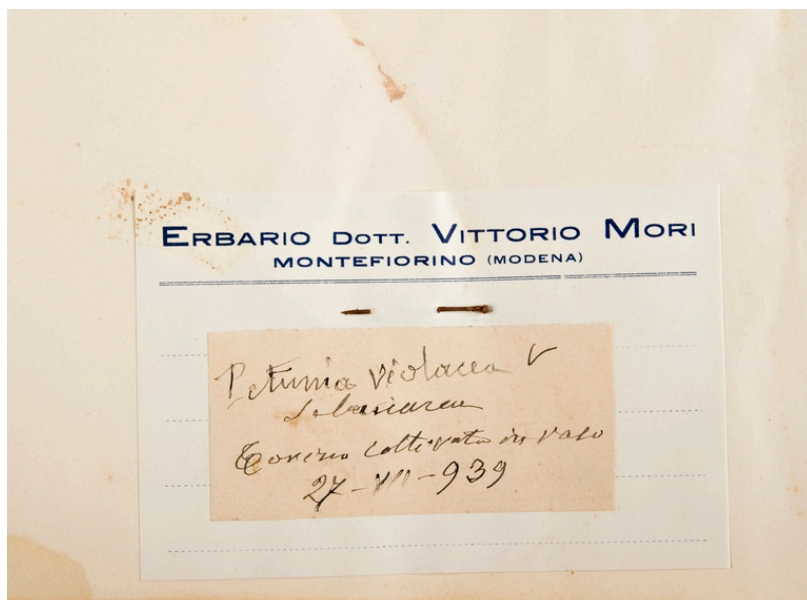 ERBARIO DOTT. VITTORIO MORI
MONTEFIORINO (MODENA)
Petunia violacea
coltivata in vaso
27-VII-939